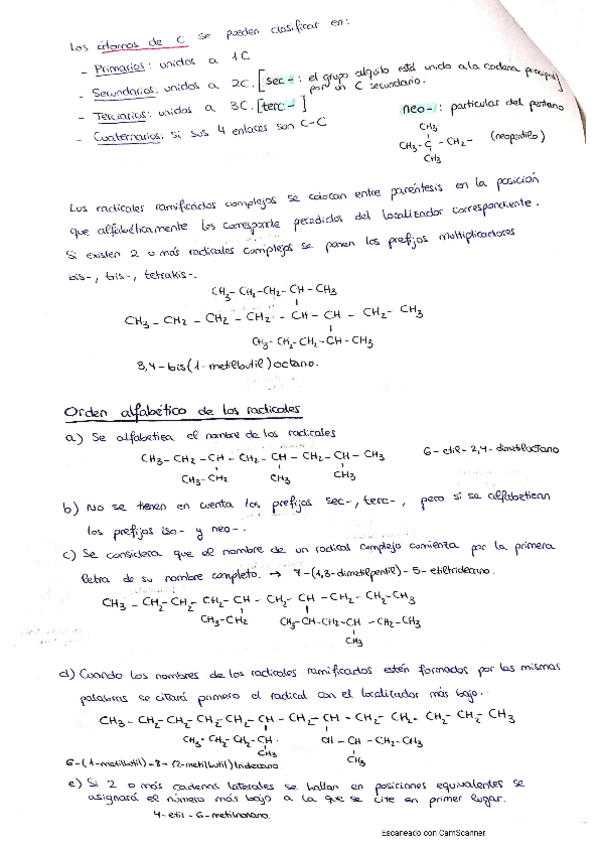 Los átomos de C se pueden clasificar en:
- Primarios: unidos a 1C
- Secundarios: unidos a 2C. [sec-: el grupo alquilo está unido a la cadena principal por un C secundario.
- Terciarios: unidos a 3C. [terc-]
- Cuaternarios: si sus 4 enlaces son C-C
neo-: particular del pentano
CH3
CH3-C-CH2- (neopentilo)
CH3
Los radicales ramificados complejos se colocan entre paréntesis en la posición
que alfabéticamente les corresponde precedidos del localizador correspondiente.
Si existen 2 o más radicales complejos se ponen los prefijos multiplicadores
bis-, tris-, tetrakis-.
CH3-CH2-CH2-CH-CH3
CH3-CH2-CH2-CH2-CH-CH-CH2-CH3
CH3-CH2-CH2-CH-CH3
3,4-bis(1-metilbutil)octano.
Orden alfabético de los radicales
a) Se alfabetiza el nombre de los radicales
CH3-CH2-CH-CH2-CH-CH2-CH-CH3
CH3-CH2 CH3 CH3
6-etil-2,4-dimetiloctano
b) No se tienen en cuenta los prefijos sec-, terc-, pero si se alfabetizan
los prefijos iso- y neo-.
c) Se considera que el nombre de un radical complejo comienza por la primera
letra de su nombre completo. → 7-(1,3-dimetilpentil)-5-etiltridecano.
CH3-CH2-CH2-CH2-CH-CH2-CH-CH2-CH2-CH2-CH3
CH3-CH2 CH3-CH-CH2-CH-CH2-CH3
CH3
d) Cuando los nombres de los radicales ramificados estén formados por las mismas
palabras se citará primero el radical con el localizador más bajo.
CH3-CH2-CH2-CH2-CH2-CH-CH2-CH-CH2-CH2-CH2-CH2-CH3
CH3-CH2-CH2-CH CH-CH2-CH3
CH3 CH3
6-(1-metilbutil)-8-(2-metilbutil)tridecano
e) Si 2 o más cadenas laterales se hallan en posiciones equivalentes se
asignará el número más bajo a la que se cite en primer lugar.
4-etil-6-metilnonano.
Escaneado con CamScanner